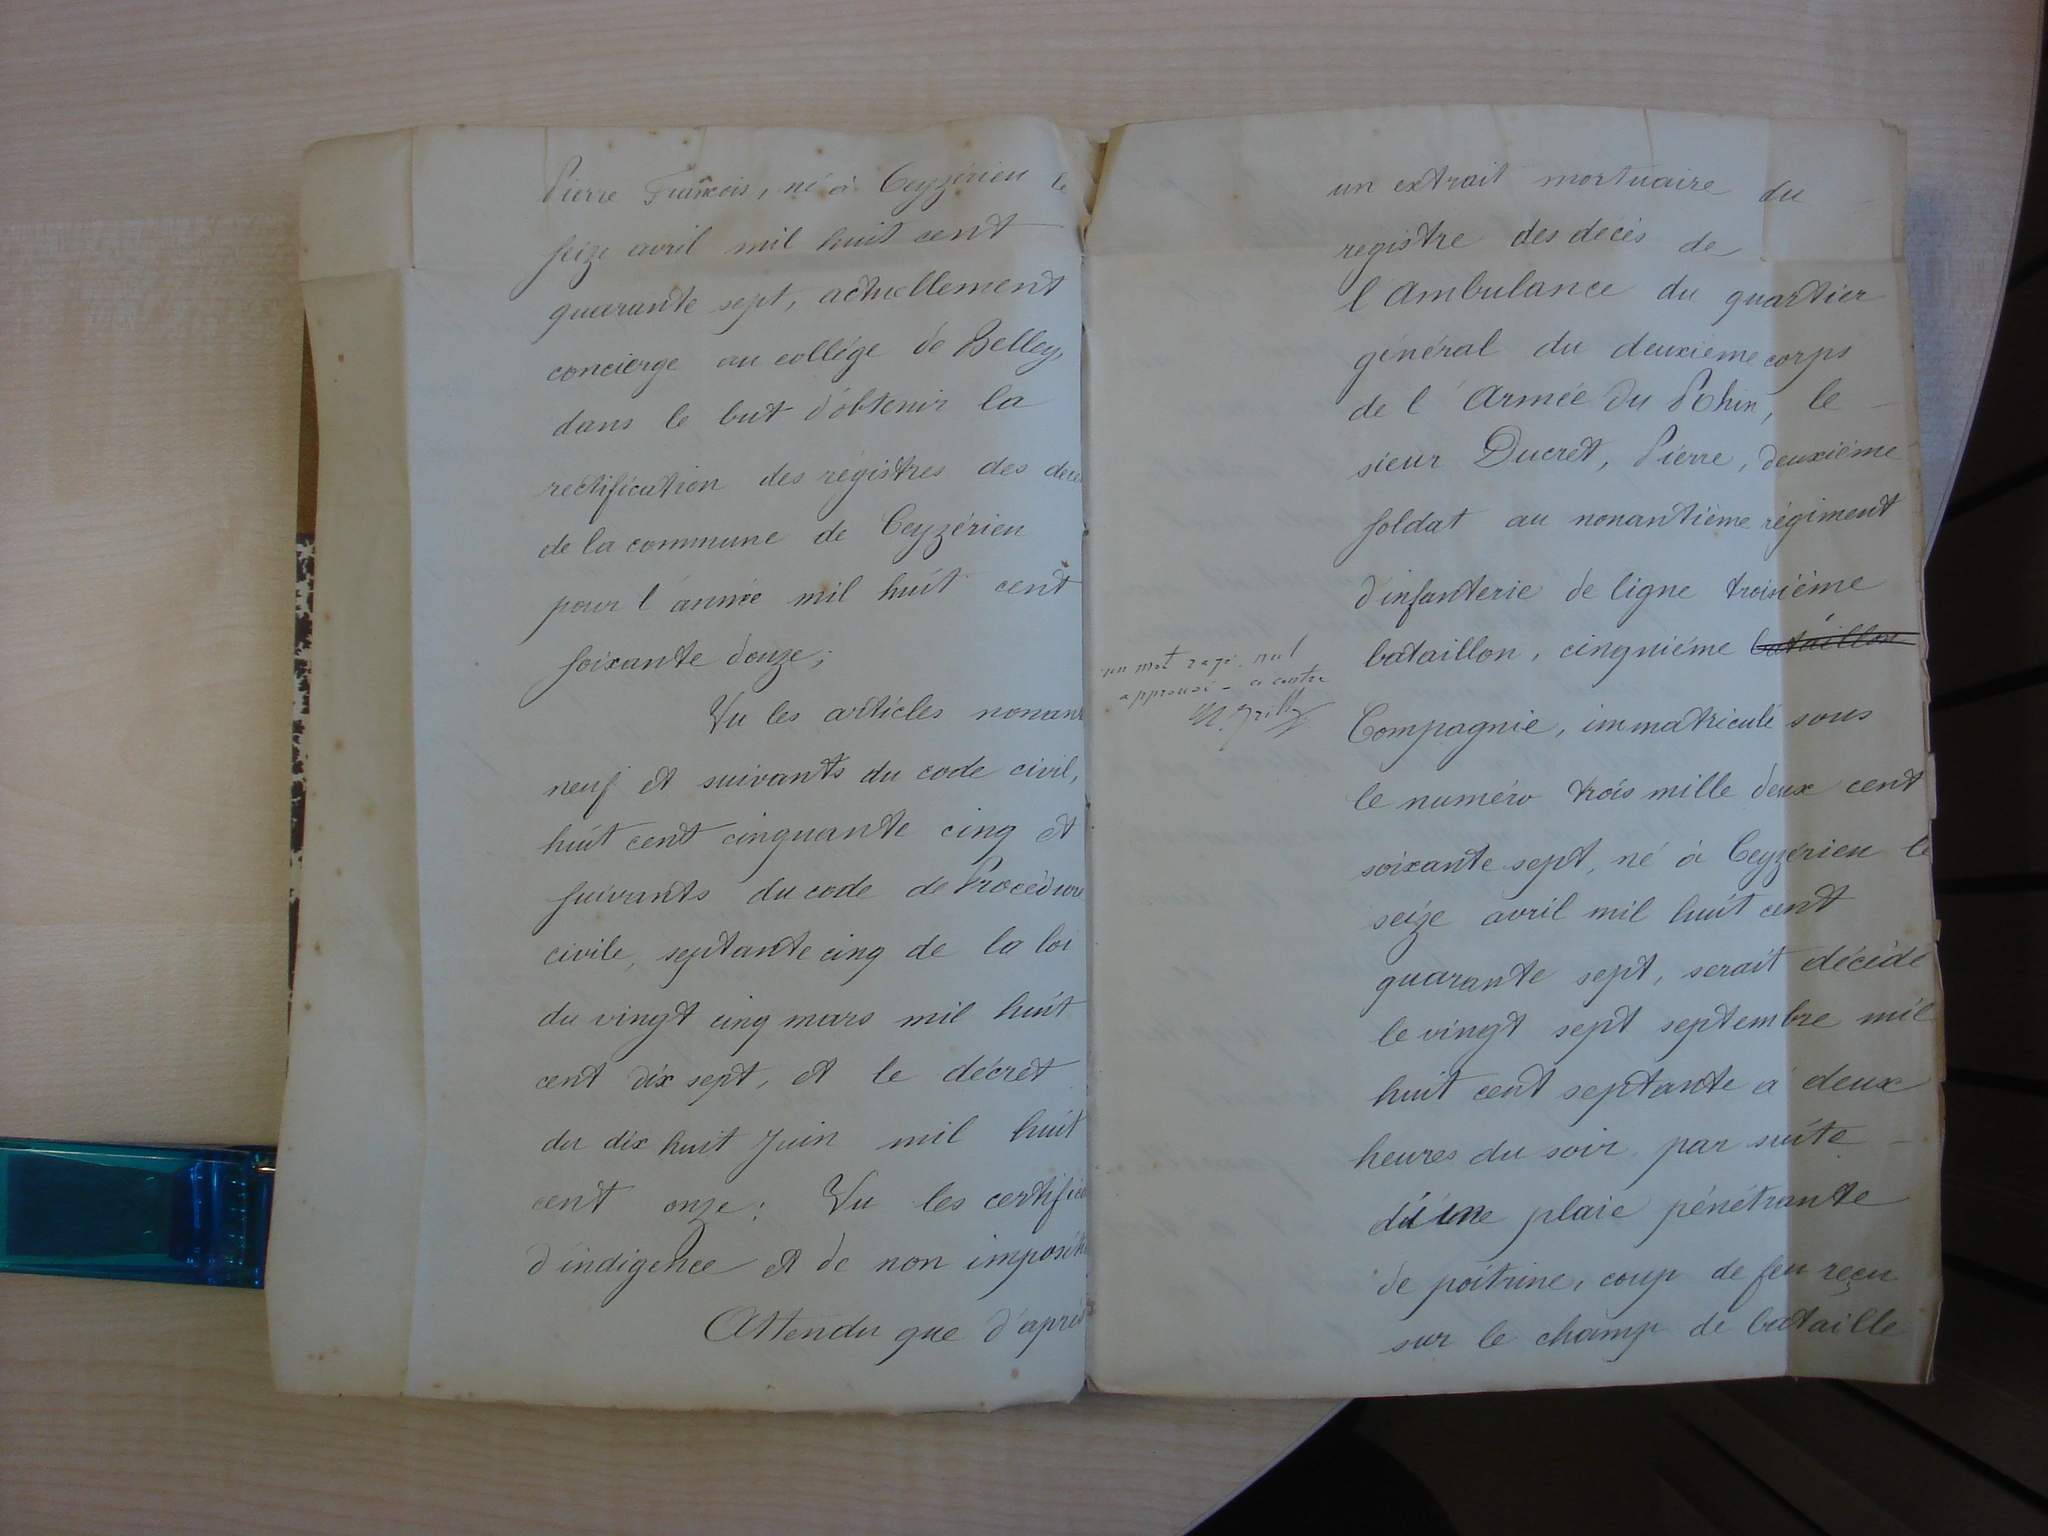 Pierre François, né à Ceyzérieu le
seize avril mil huit cent
quarante sept, actuellement
concierge au collége de Belley,
dans le but d'obtenir la
rectification des régistres des décès
de la commune de Ceyzérieu
pour l'année mil huit cent
soixante douze;
Vu les articles nonante
neuf et suivants du code civil,
huit cent cinquante cinq et
suivants du code de Procédure
civile, septante cinq de la loi
du vingt cinq mars mil huit
cent dix sept, et le décret
du dix huit Juin mil huit
cent onze; Vu les certificats
d'indigence et de non imposition
Attendu que d'après
un extrait mortuaire du
registre des décès de
l'Ambulance du quartier
général du deuxième corps
de l'Armée du Rhin, le
sieur Ducret, Pierre, deuxième
soldat au nonantième régiment
d'infanterie de ligne troisième
bataillon, cinquième bataillon
un mot rayé nul
approuvé - ci contre
Compagnie, immatriculé sous
le numéro trois mille deux cent
soixante sept, né à Ceyzérieu le
seize avril mil huit cent
quarante sept, serait décédé
le vingt sept septembre mil
huit cent septante à deux
heures du soir par suite
d'une plaie pénétrante
de poitrine, coup de feu reçu
sur le champ de bataille